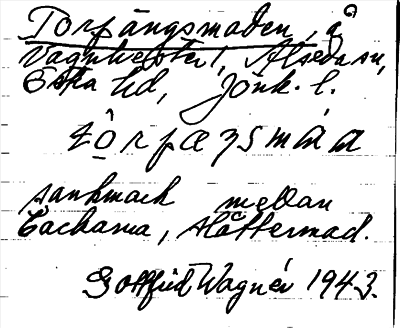 Torpängsmaden, å
Vagnhester, Alseda sn,
Östra hd, Jönk. l.
tórpæŋsmáa
sankmark mellan
bäckarna, slåttermad.
Gottfrid Wagnér 1943.